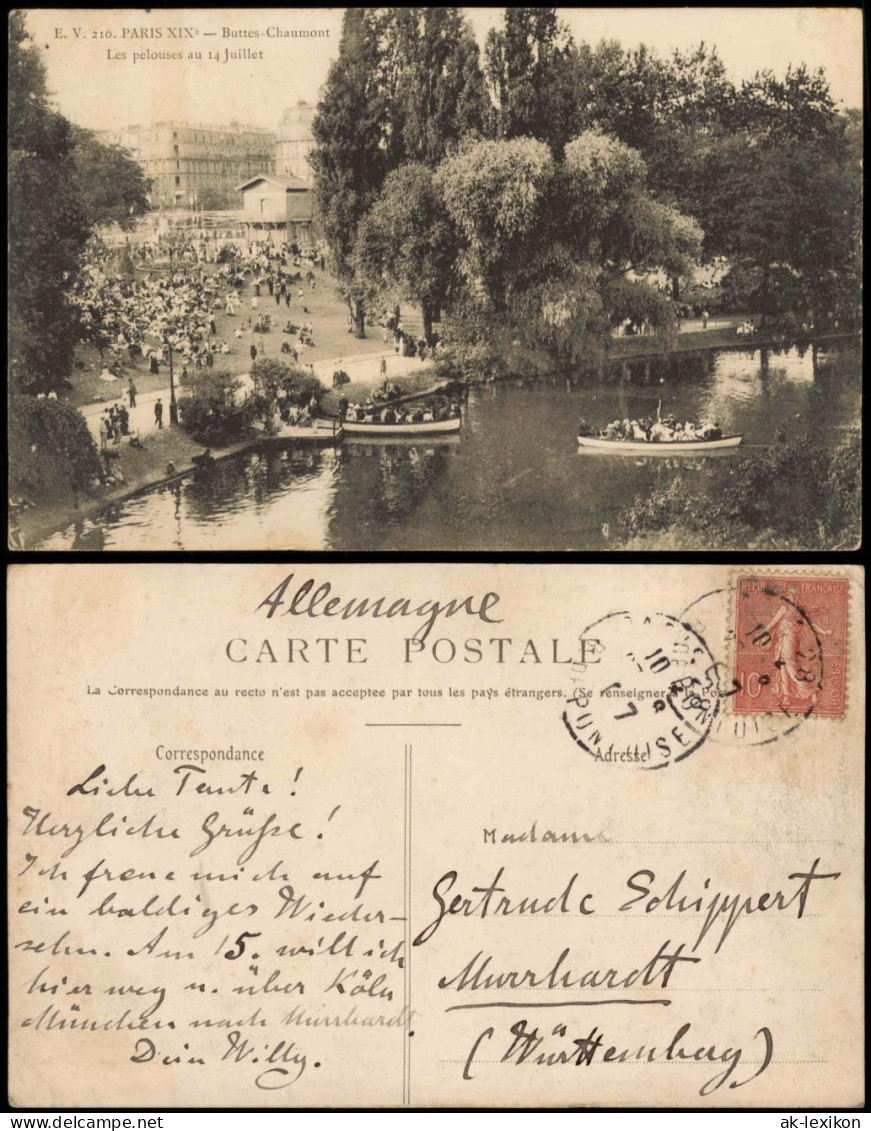 E. V. 210. PARIS XIXe — Buttes-Chaumont
Les pelouses au 14 Juillet
Allemagne
CARTE POSTALE
La Correspondance au recto n'est pas acceptée par tous les pays étrangers. (Se renseigner à la Poste
REPUBLIQUE FRANÇAISE
10c
POSTES
Correspondance
Adresse
Liebe Tante!
Herzliche Grüße!
Ich freue mich auf
ein baldiges Wieder-
sehn. Am 15. will ich
hier weg u. über Köln
München nach Murrhardt.
Dein Willy.
Madame
Gertrude Schippert
Murrhardt
(Württemberg)
ak-lexikon